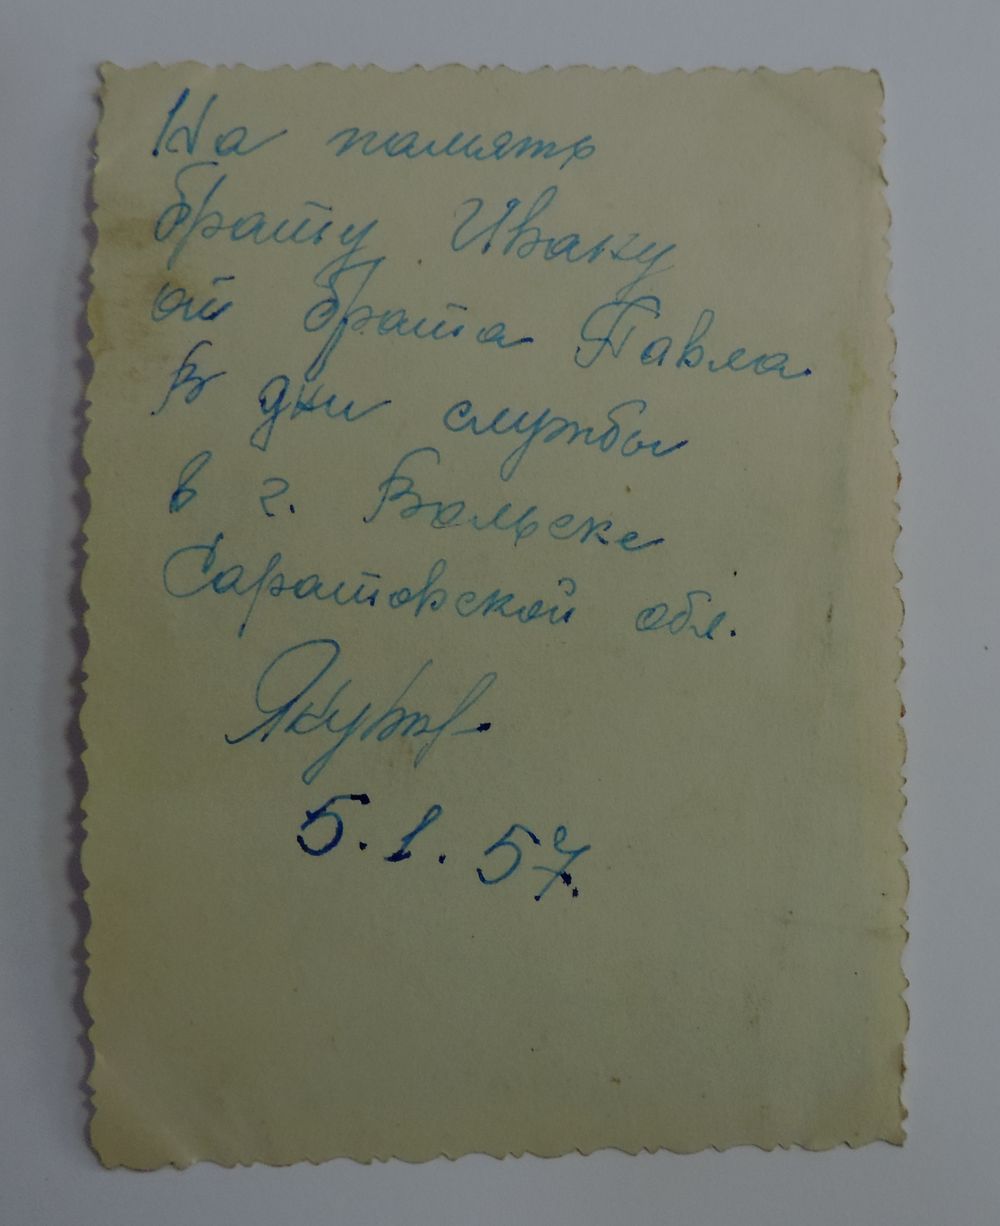 На память
брату Ивану
от брата Павла
В дни службы
в г. Вольске
Саратовской обл.
5.1.57.